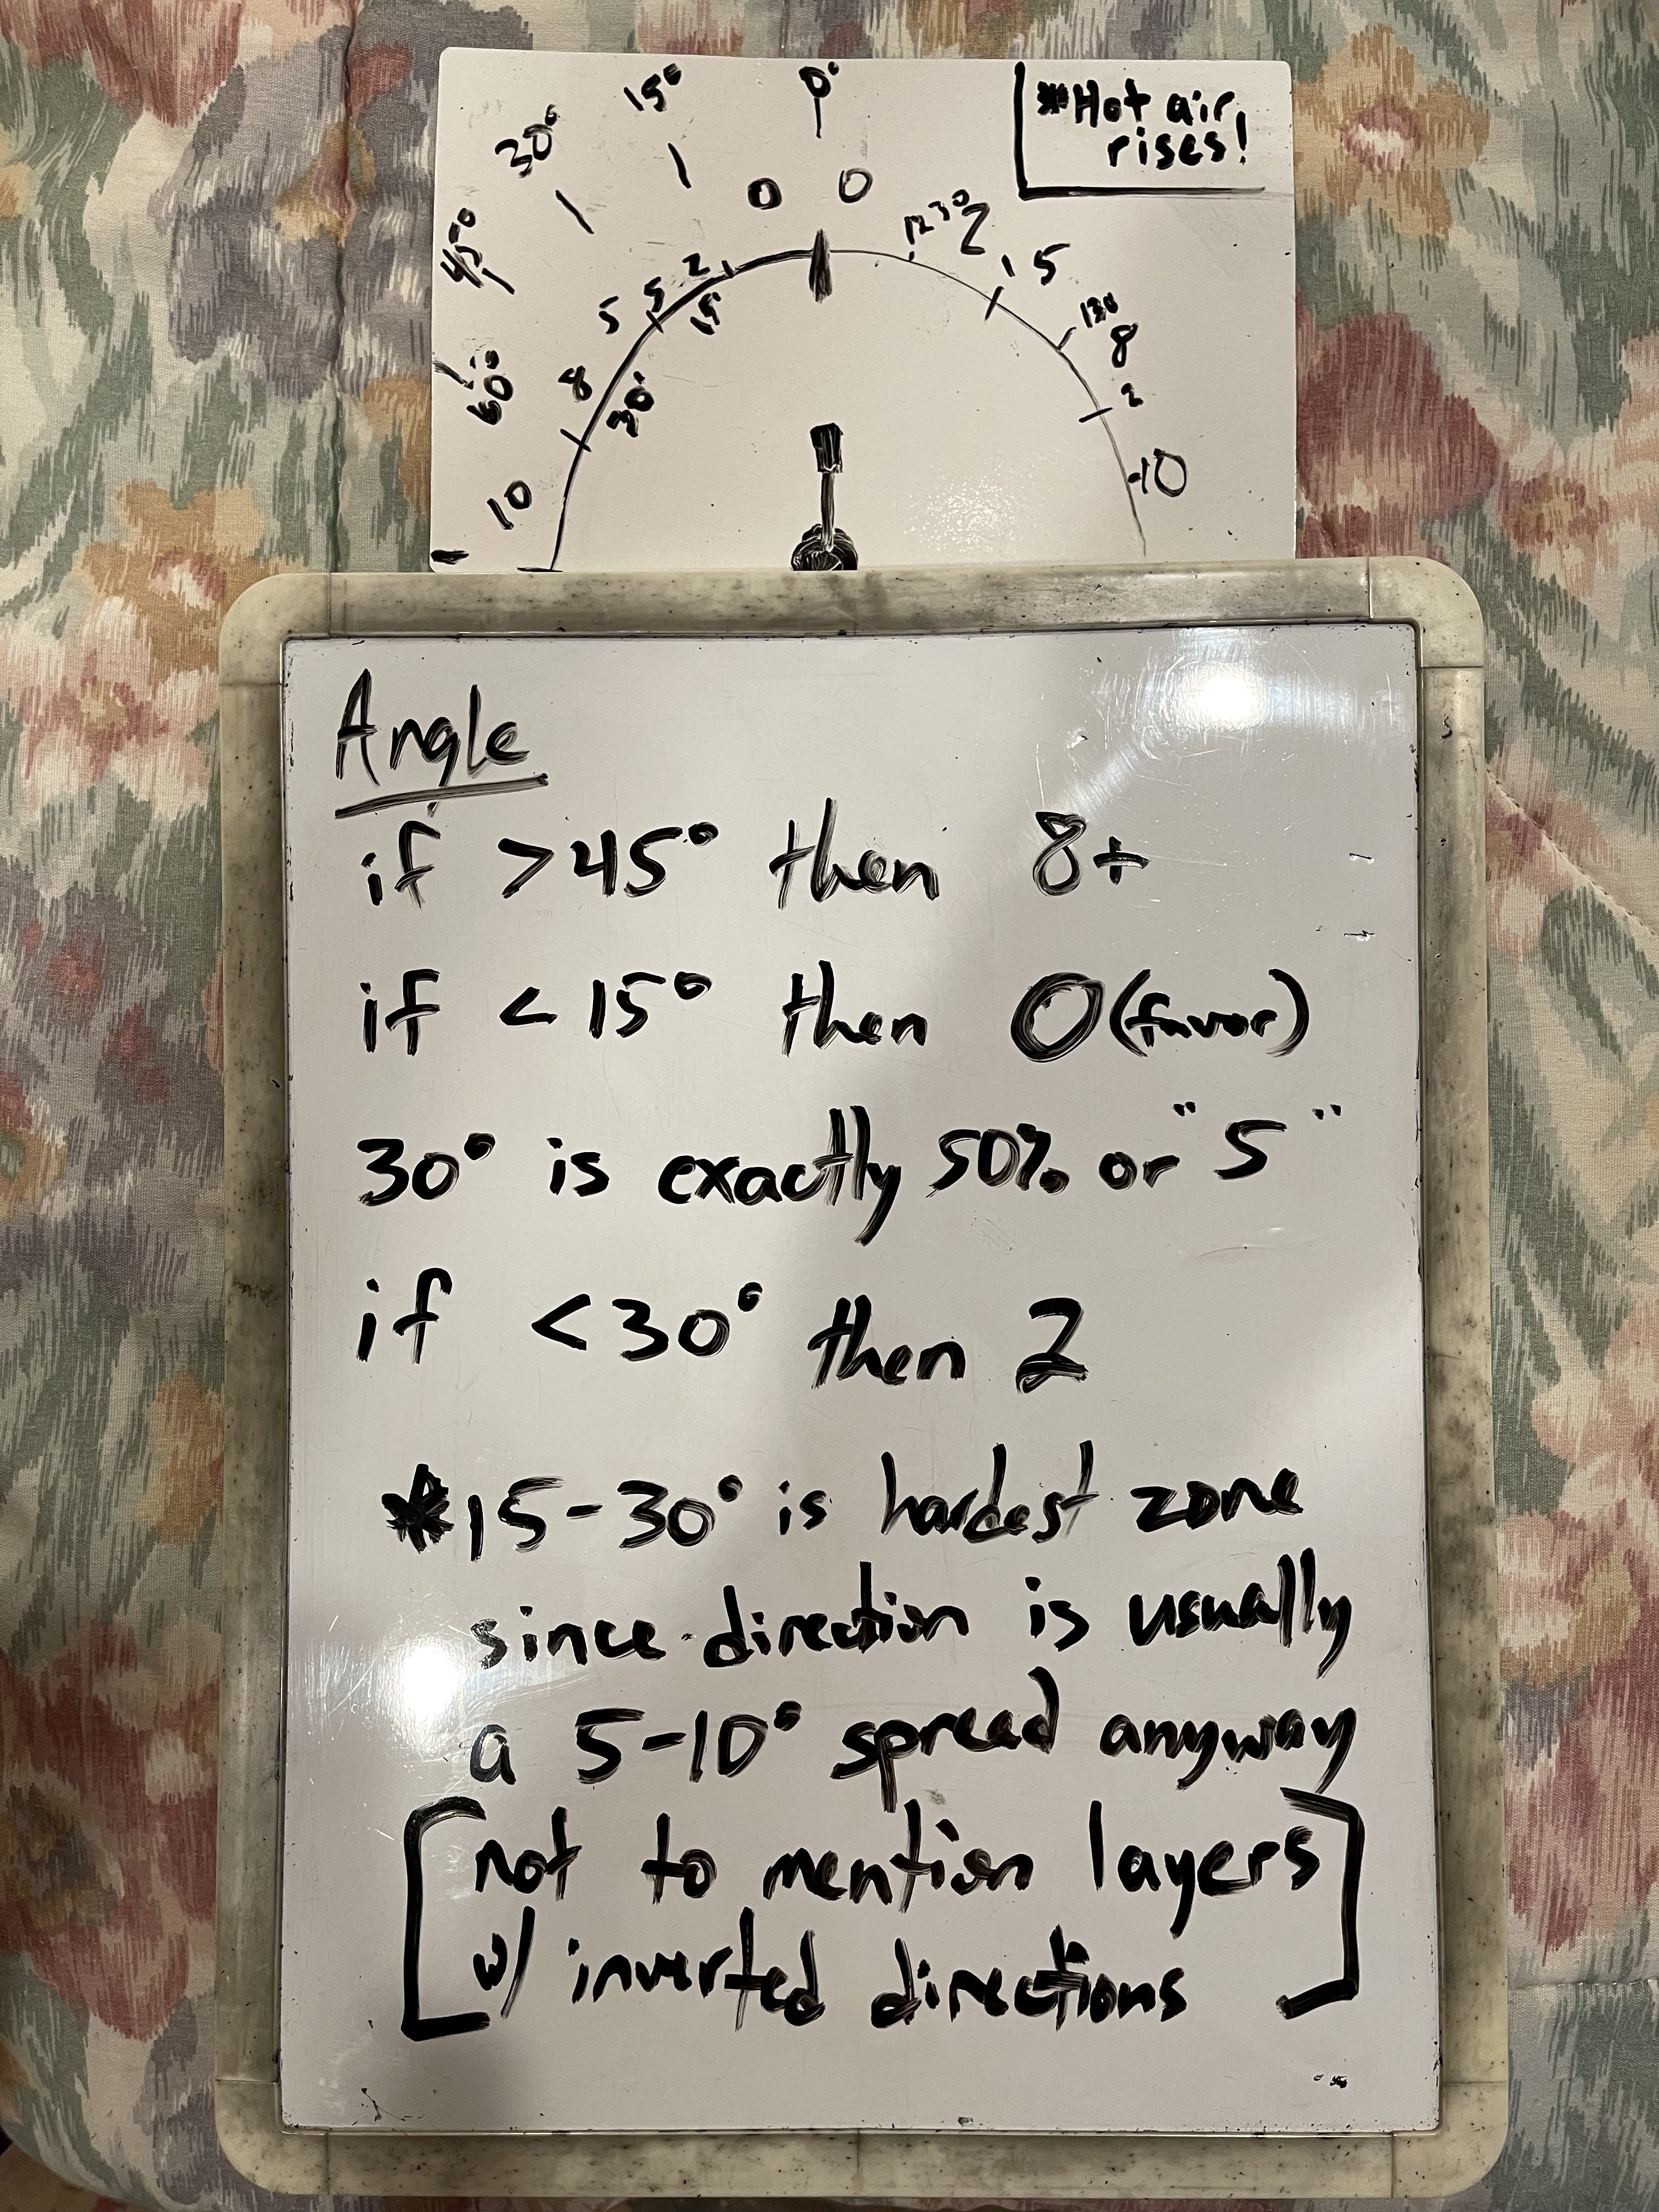 0°
15°
30°
45°
60°
*Hot air
rises!
0 0
12³⁰ 2
1 5
1³⁰
8
2
10
2
15
5
5
8
30°
10
Angle
if >45° then 8+
if <15° then 0 (favor)
30° is exactly 50% or "5"
if <30° then 2
*15-30° is hardest zone
since direction is usually
a 5-10° spread anyway
[not to mention layers
w/ inverted directions]